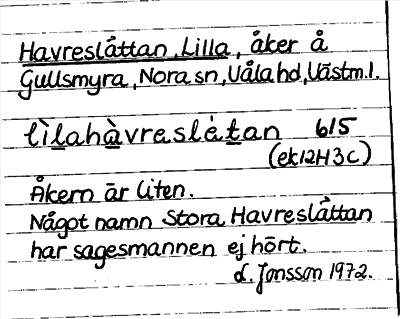 Havreslåttan, Lilla, åker å
Gullsmyra, Nora sn, Våla hd, Västm.l.
lìlahàvresle̊tan 615
(ek12H3c)
Åkern är liten.
Något namn Stora Havreslåttan
har sagesmannen ej hört.
L. Jonsson 1972.